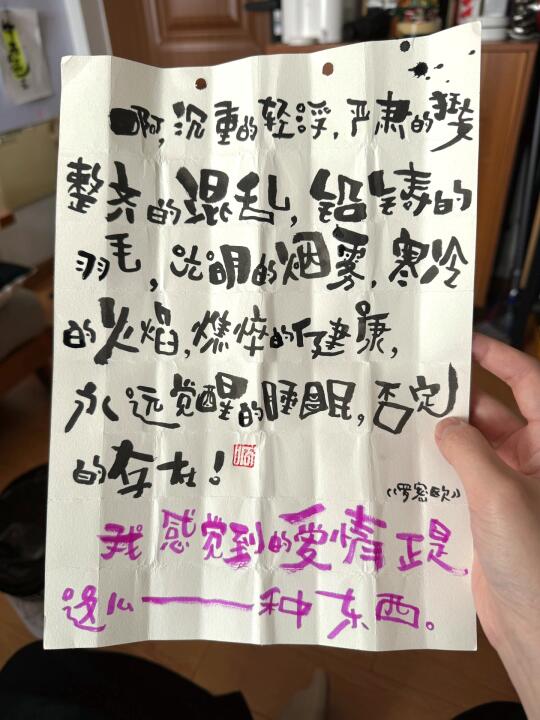 啊，沉重的轻浮，严肃的狂妄
整齐的混乱，铅铸的
羽毛，光明的烟雾，寒冷
的火焰，憔悴的健康，
永远觉醒的睡眠，否定
的存在！
《罗密欧》
我感觉到的爱情正是
这么一种东西。